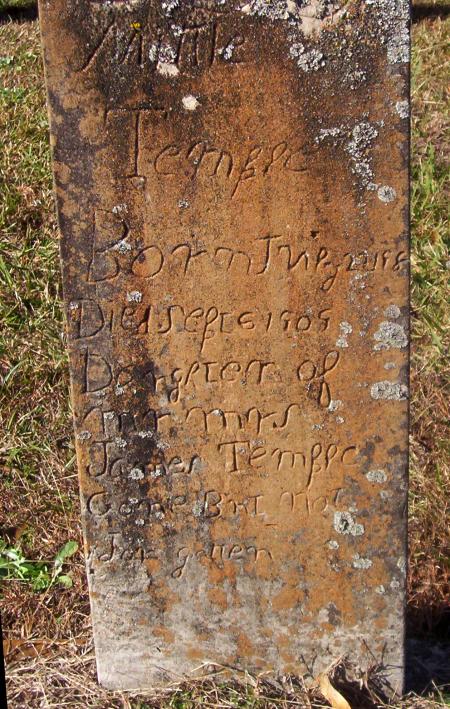 Mittie
Temple
Born July 2 198
Died Sept 6 1905
Doughter of
mr mrs
James Temple
Gone But Not
For gotten